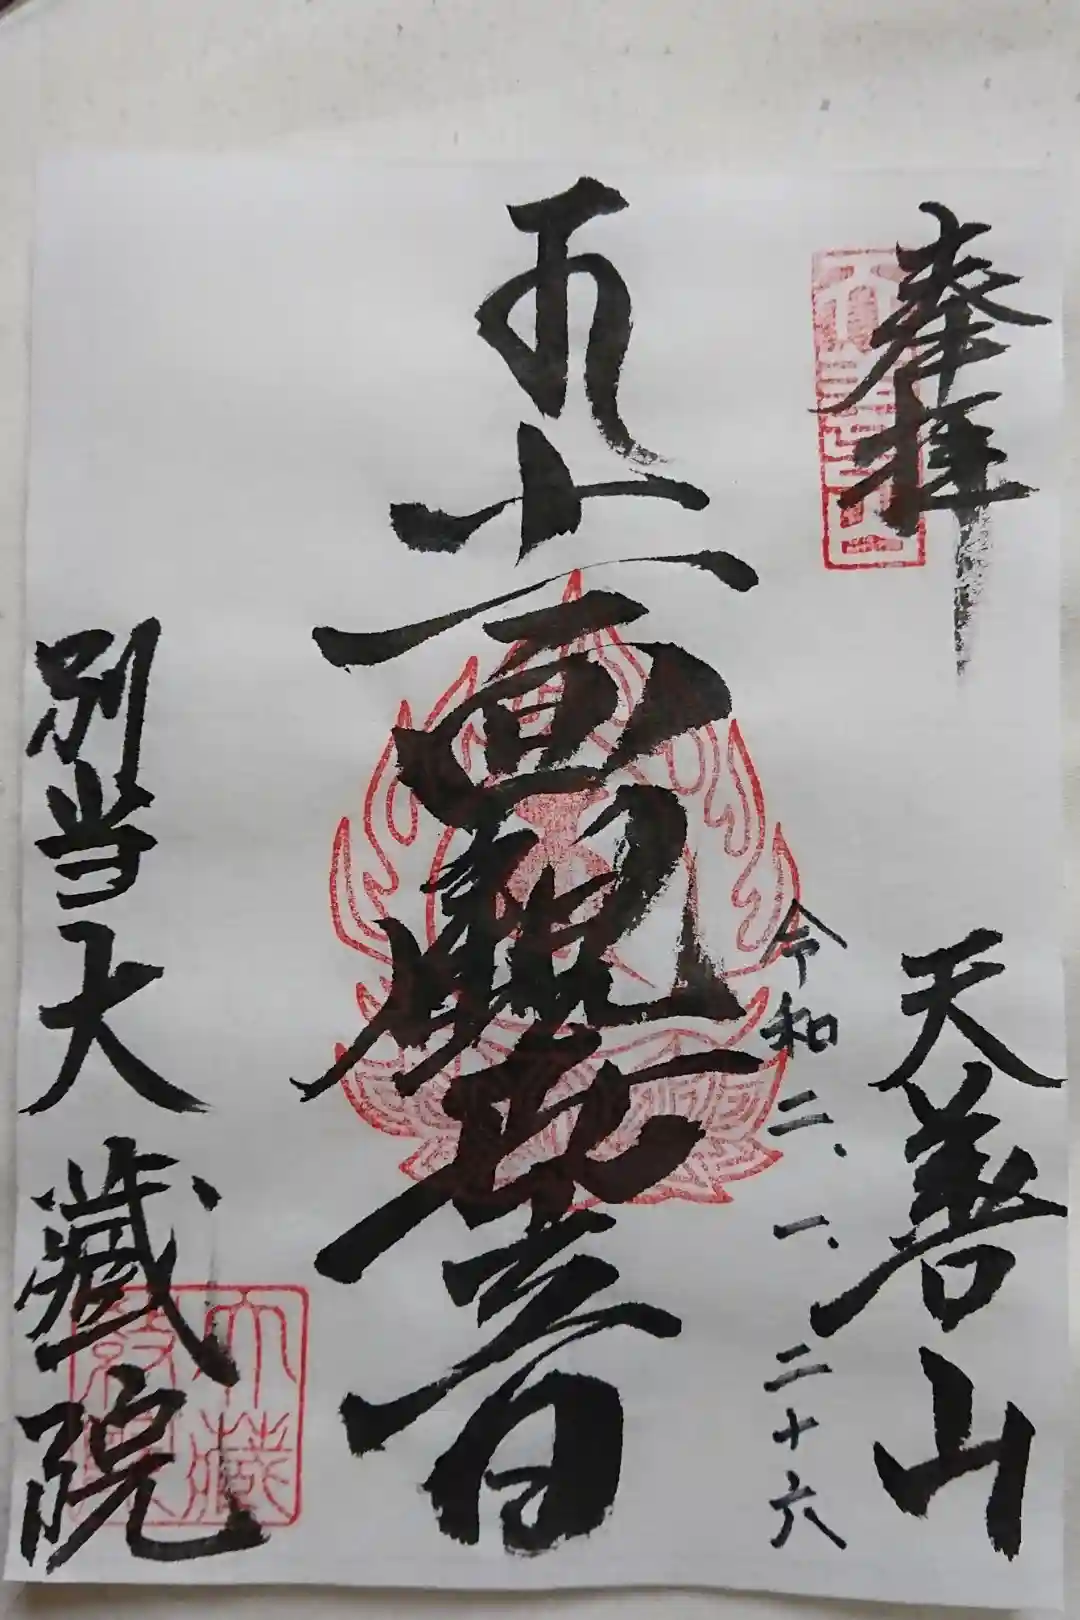 奉拝
天善山
令和二、一、二十六
十一面観世音
別当大藏院
大藏